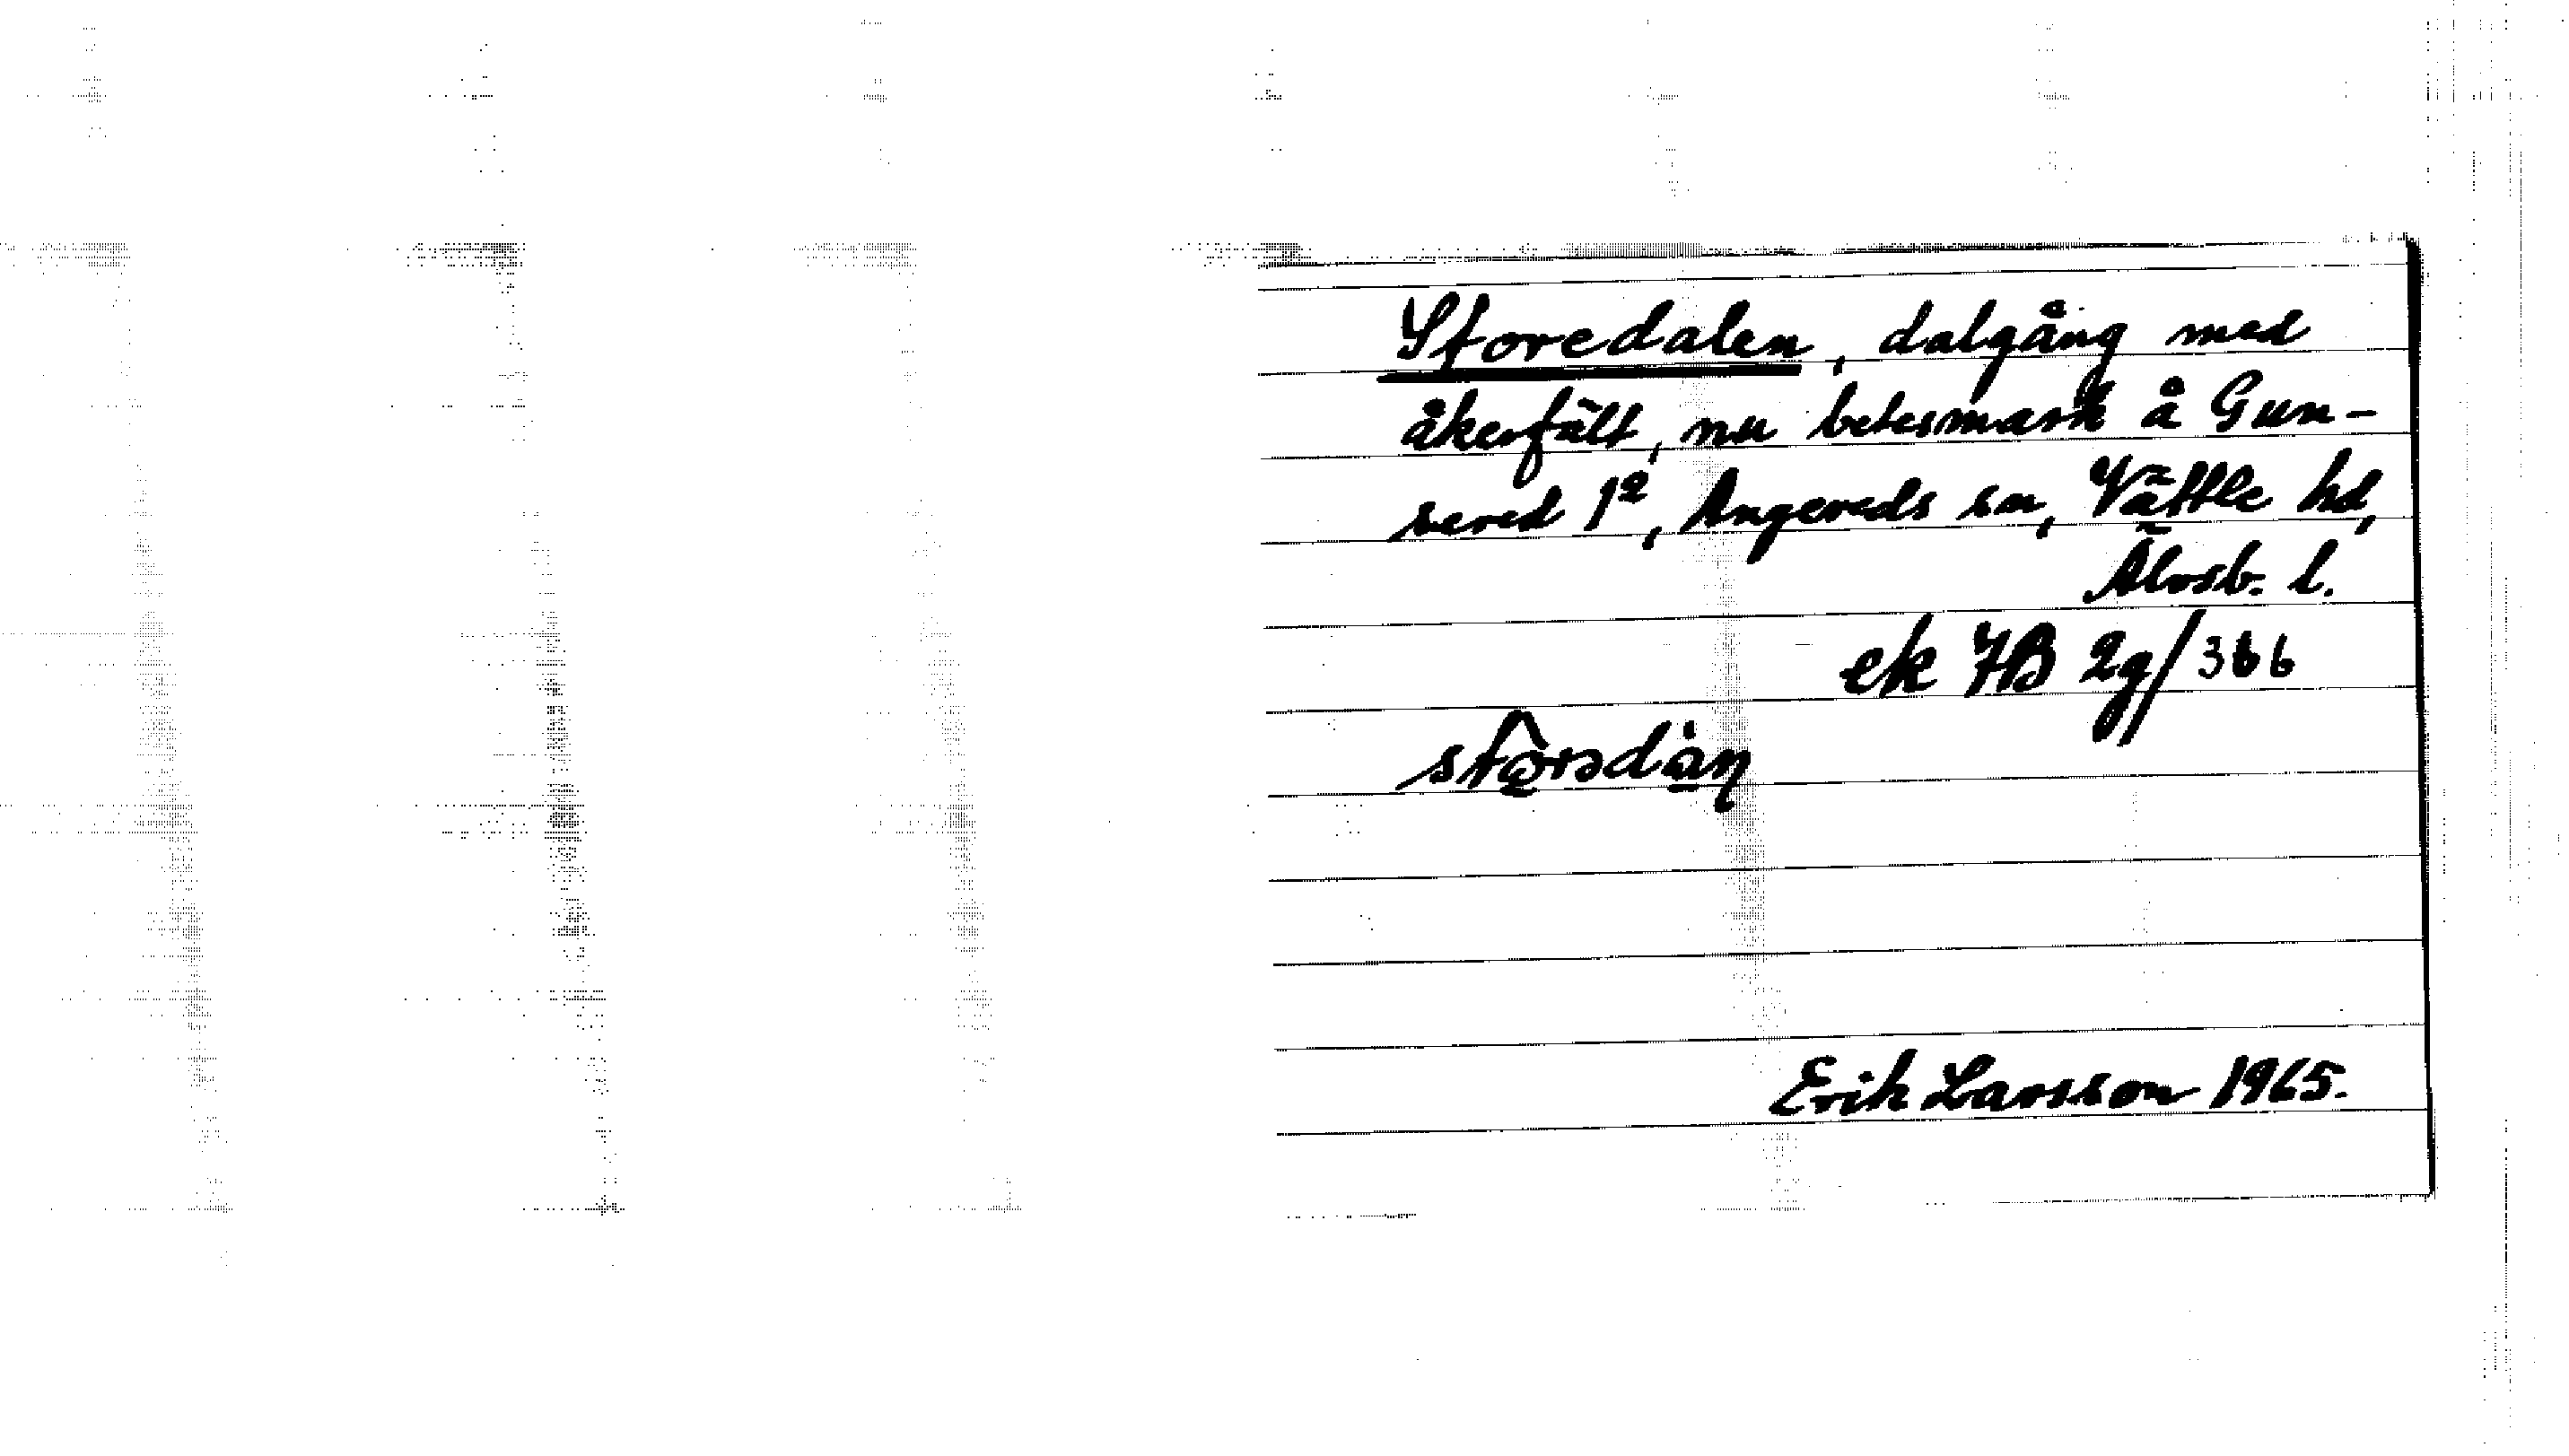 Storedalen, dalgång med
åkerfält, nu betesmark å Gun-
sered 1², Angereds sn, Vättle hd,
Älvsb. l.
ek 7B 2g/366
Erik Larsson 1965.